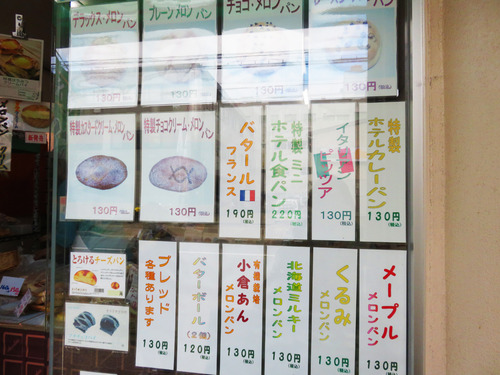 デラックス・メロンパン
130円
プレーンメロンパン
130円
チョコ・メロンパン
130円
メロンパン
130円
特製カスタードクリーム・メロンパン
130円(税込)
特製チョコクリーム・メロンパン
130円(税込)
バタール
フランス
190円
(税込)
特製ミニ
ホテル食パン
220円
(税込)
イタリアン
ピッツア
130円
(税込)
特製
ホテルカレーパン
130円
(税込)
とろけるチーズパン
ブレッド
各種あります
130円
(税込)
バターボール
(2個)
120円
(税込)
有機栽培
小倉あん
メロンパン
130円
(税込)
北海道ミルキー
メロンパン
130円
(税込)
くるみ
メロンパン
130円
(税込)
メープル
メロンパン
130円
(税込)